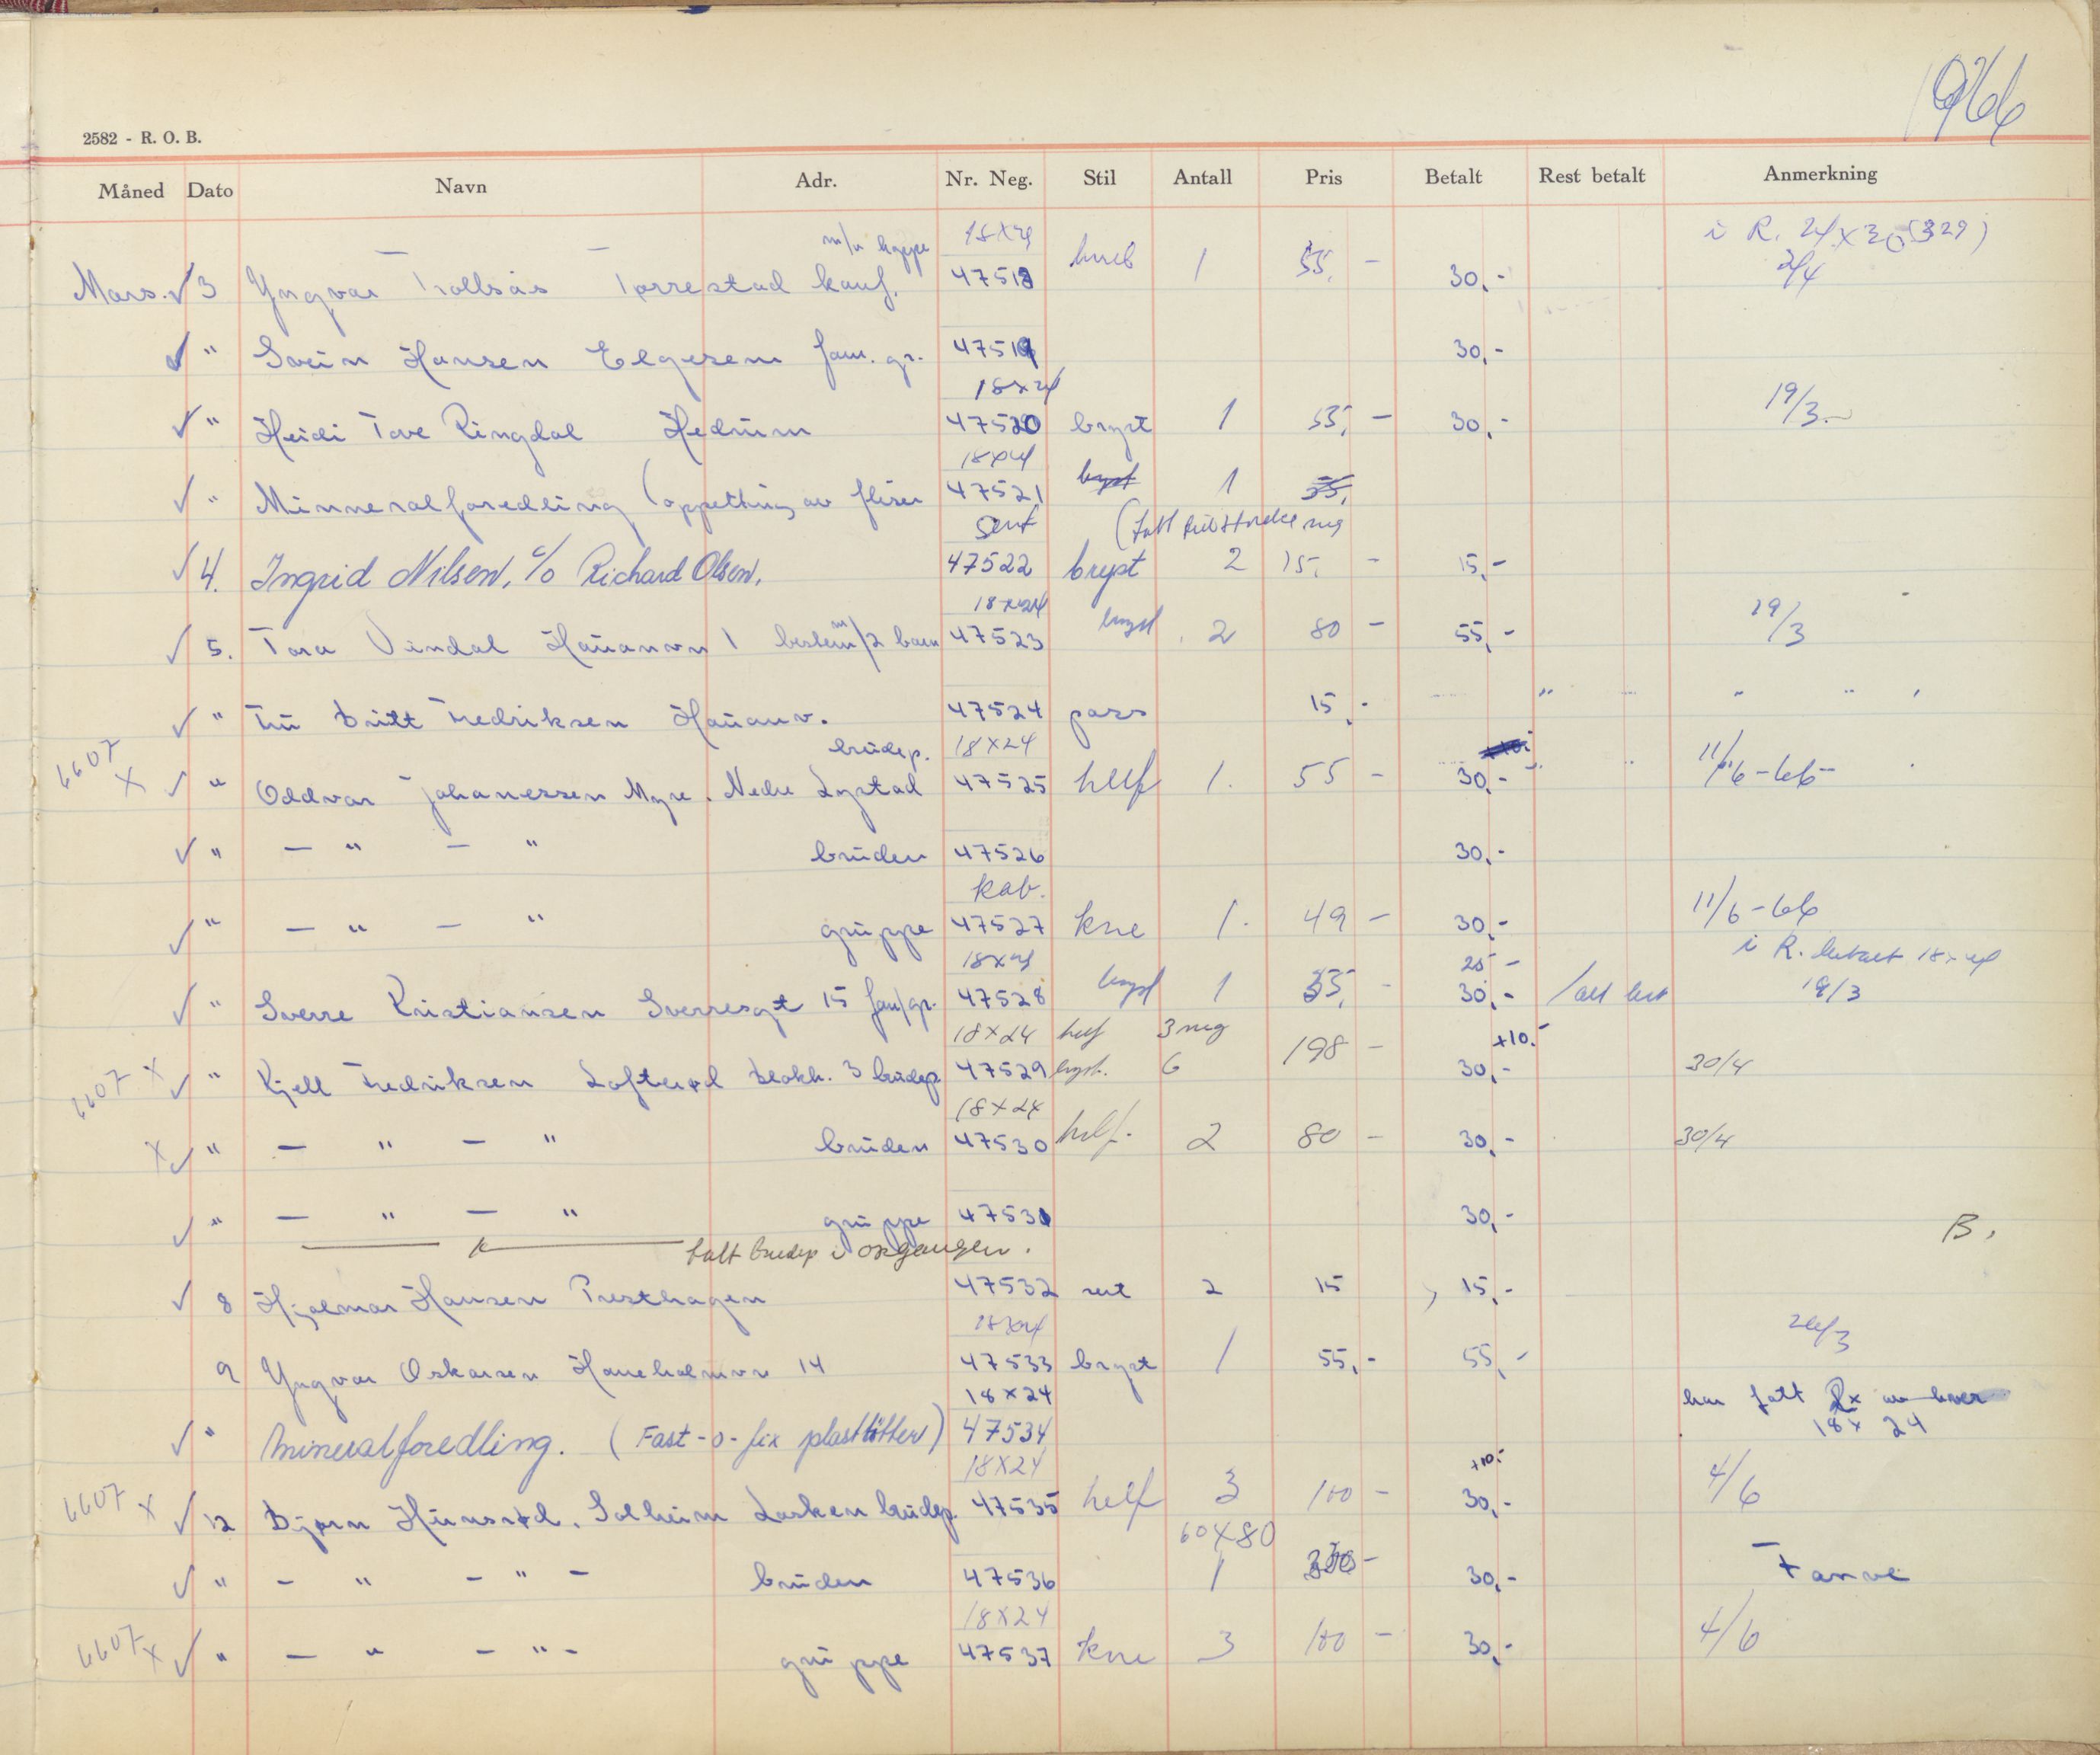 1966
2582 - R. O. B.
Måned Dato Navn Adr. Nr. Neg. Stil Antall Pris Betalt Rest betalt Anmerkning
18x24 i R. 24x30 (329)
Mars. ✓ 3 Yngvar Trollsås Torrestad 47518 1 55,- 30,- 2/4
✓ " Svein Hansen Elgesem fam. gr. 47519 30,-
18x24
✓ " Heidi Tove Ringdal Hedrum 47520 bryst 1 55,- 30,- 19/3
18x24
✓ " Minneralforedling 47521 bryst 1 55,
✓ 4. Ingrid Nilsen, c/o Richard Olsen. 47522 bryst 2 15,- 15,-
18x24
✓ 5. Tora Vindal Hauanvn 1 47523 bryst 2 80 - 55,- 29/3
✓ " Fru Britt Fredriksen Hauanv. 47524 pass 15,- "
6607 brudep. 18x24
x ✓ " Oddvar Johanessen Myre. Nedre Lystad 47525 helf 1. 55 - 30,- 11/6-66
✓ " - " - " bruden 47526 30,-
kab.
✓ " - " - " gruppe 47527 kne 1. 49 - 30,- 11/6-66
18x24 25 - i R. 18x24
✓ " Sverre Kristiansen Sverresgt 15 fam/gr. 47528 bryst 1 55,- 30,- 19/3
18x24 helf 3 neg +10.-
6607 x ✓ " Kjell Fredriksen 3 brudep 47529 bryst. 6 198 - 30,- 30/4
18x24
x ✓ " - " - " bruden 47530 helf. 2 80 - 30,- 30/4
✓ " - " - " gruppe 47531 30,-
fått brudep i B.
✓ 8 Hjalmar Hansen Presthagen 47532 2 15 15,-
18x24
9 Yngvar Oskarsen 14 47533 bryst 1 55,- 55,- 24/3
18x24 har fått
✓ " Mineralforedling. (Fast-o-fix plastføtter) 47534 18x24
18x24 +10.-
6607 x ✓ 12 Bjørn Hunsrød, Solheim brudep. 47535 helf 3 100 - 30,- 4/6
60x80
✓ " - " - " - bruden 47536 1 30,- Farve
18x24
6607 x ✓ " - " - " - gruppe 47537 kne 3 100 - 30,- 4/6